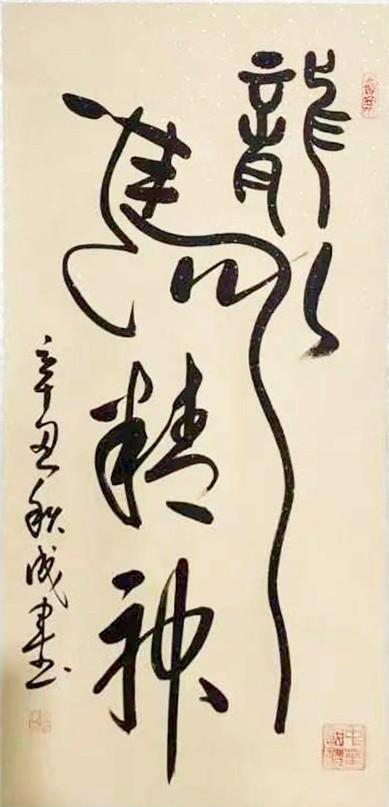 龍馬精神
辛丑秋成書